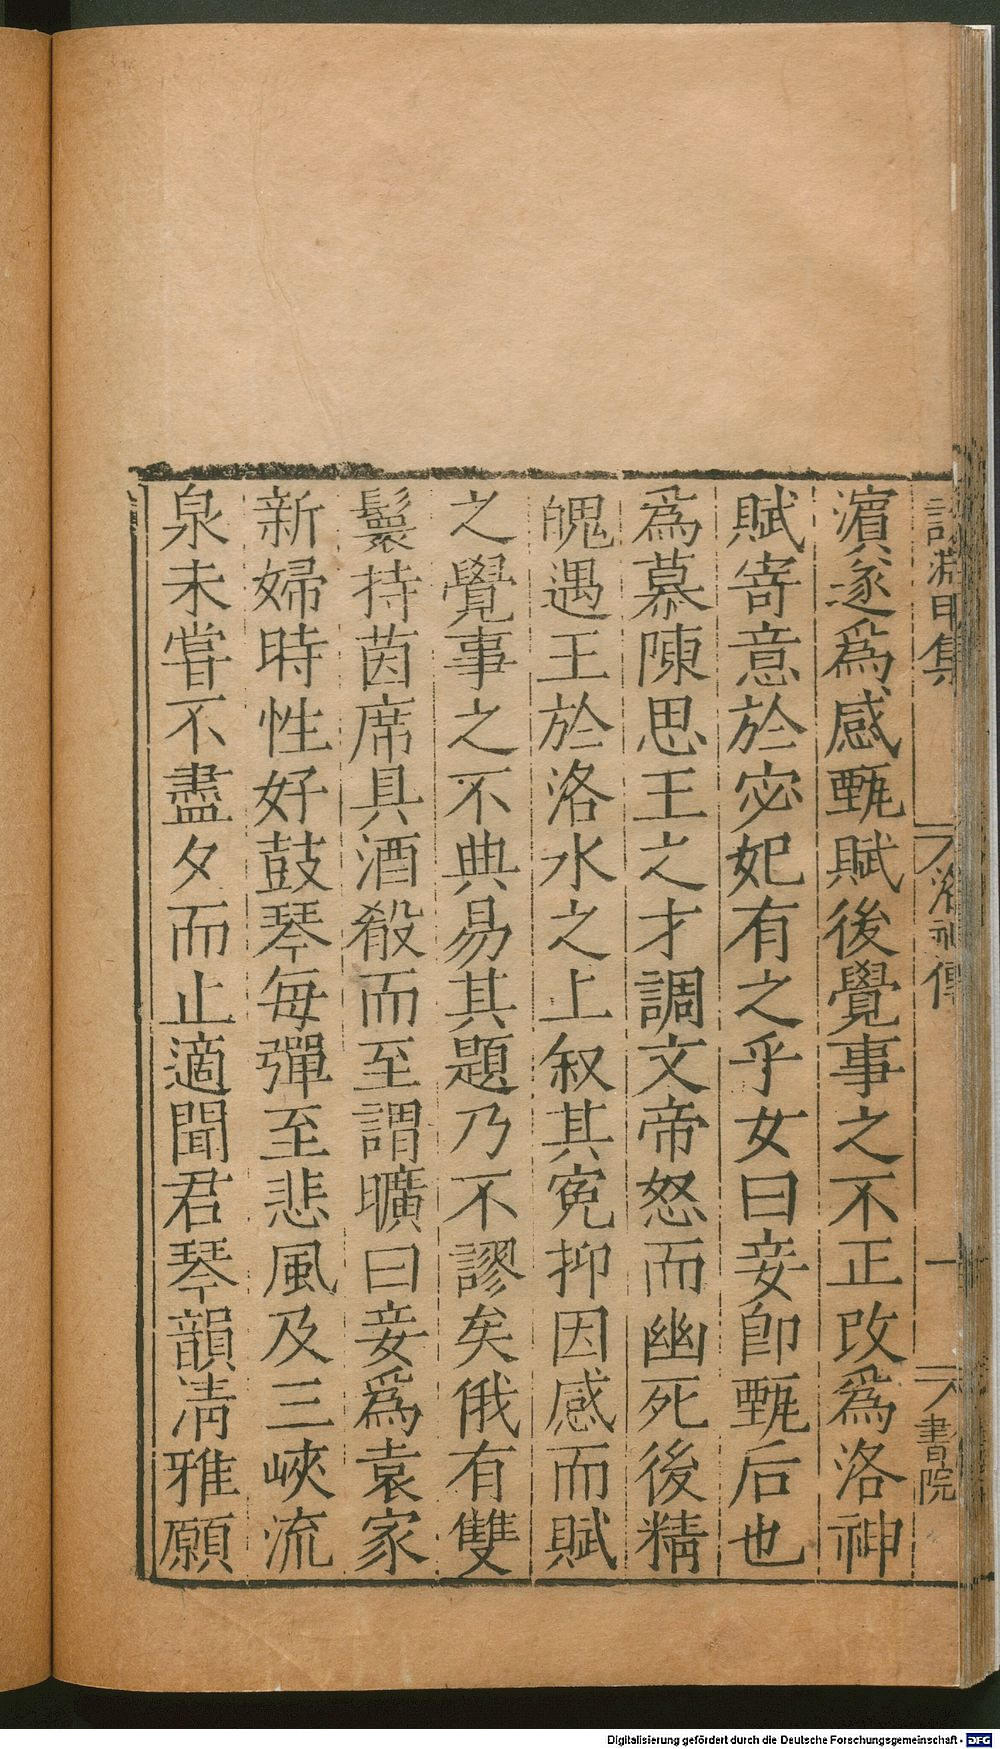 說淵甲集 洛神傳 一 書院
濵遂爲感甄賦後覺事之不正改爲洛神
賦寄意於宓妃有之乎女曰妾卽甄后也
爲慕陳思王之才調文帝怒而幽死後精
魄遇王於洛水之上叙其寃抑因感而賦
之覺事之不典易其題乃不謬矣俄有雙
鬟持茵席具酒殽而至謂曠曰妾爲袁家
新婦時性好鼓琴每彈至悲風及三峽流
泉未嘗不盡夕而止適聞君琴韻淸雅願
Digitalisierung gefördert durch die Deutsche Forschungsgemeinschaft - DFG